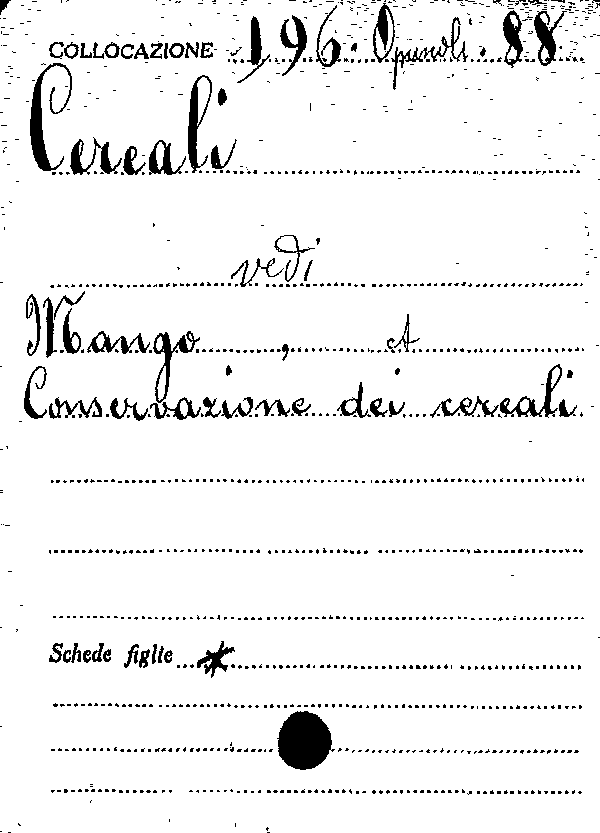 COLLOCAZIONE 196. Opuscoli. 88
Cereali
vedi
Mango, et
Conservazione dei cereali
Schede figlie *